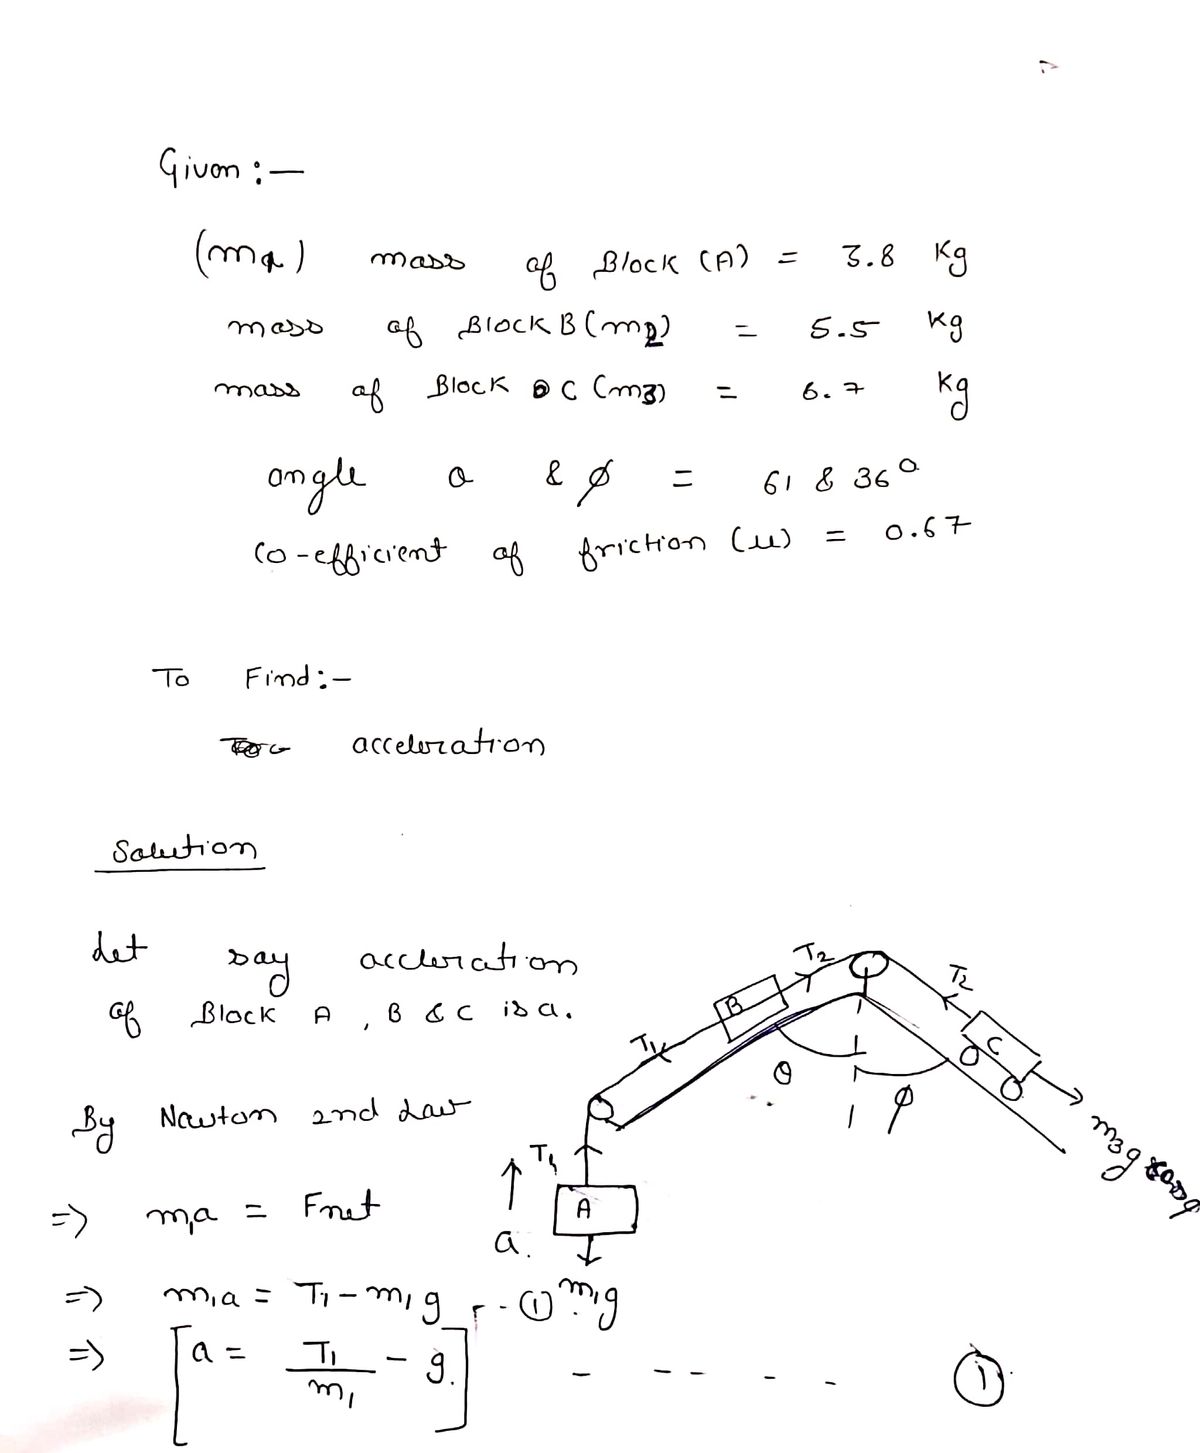 Given :—
(m1) mass of Block (A) = 3.8 Kg
mass of Block B (m2) = 5.5 Kg
mass of Block C (m3) = 6.7 Kg
angle θ & φ = 61 & 36°
Co-efficient of friction (μ) = 0.67
To Find :—
acceleration
Solution
Let say accleration
of Block A , B & C is a.
By Newton 2nd Law
=> m1a = Fnet
=> m1a = T1 - m1g -- ①
=> [a = T1/m1 - g.] - - - - - ①
T2
T2
B
C
T1
θ
φ
m3g cosφ
T1
a.
A
m1g